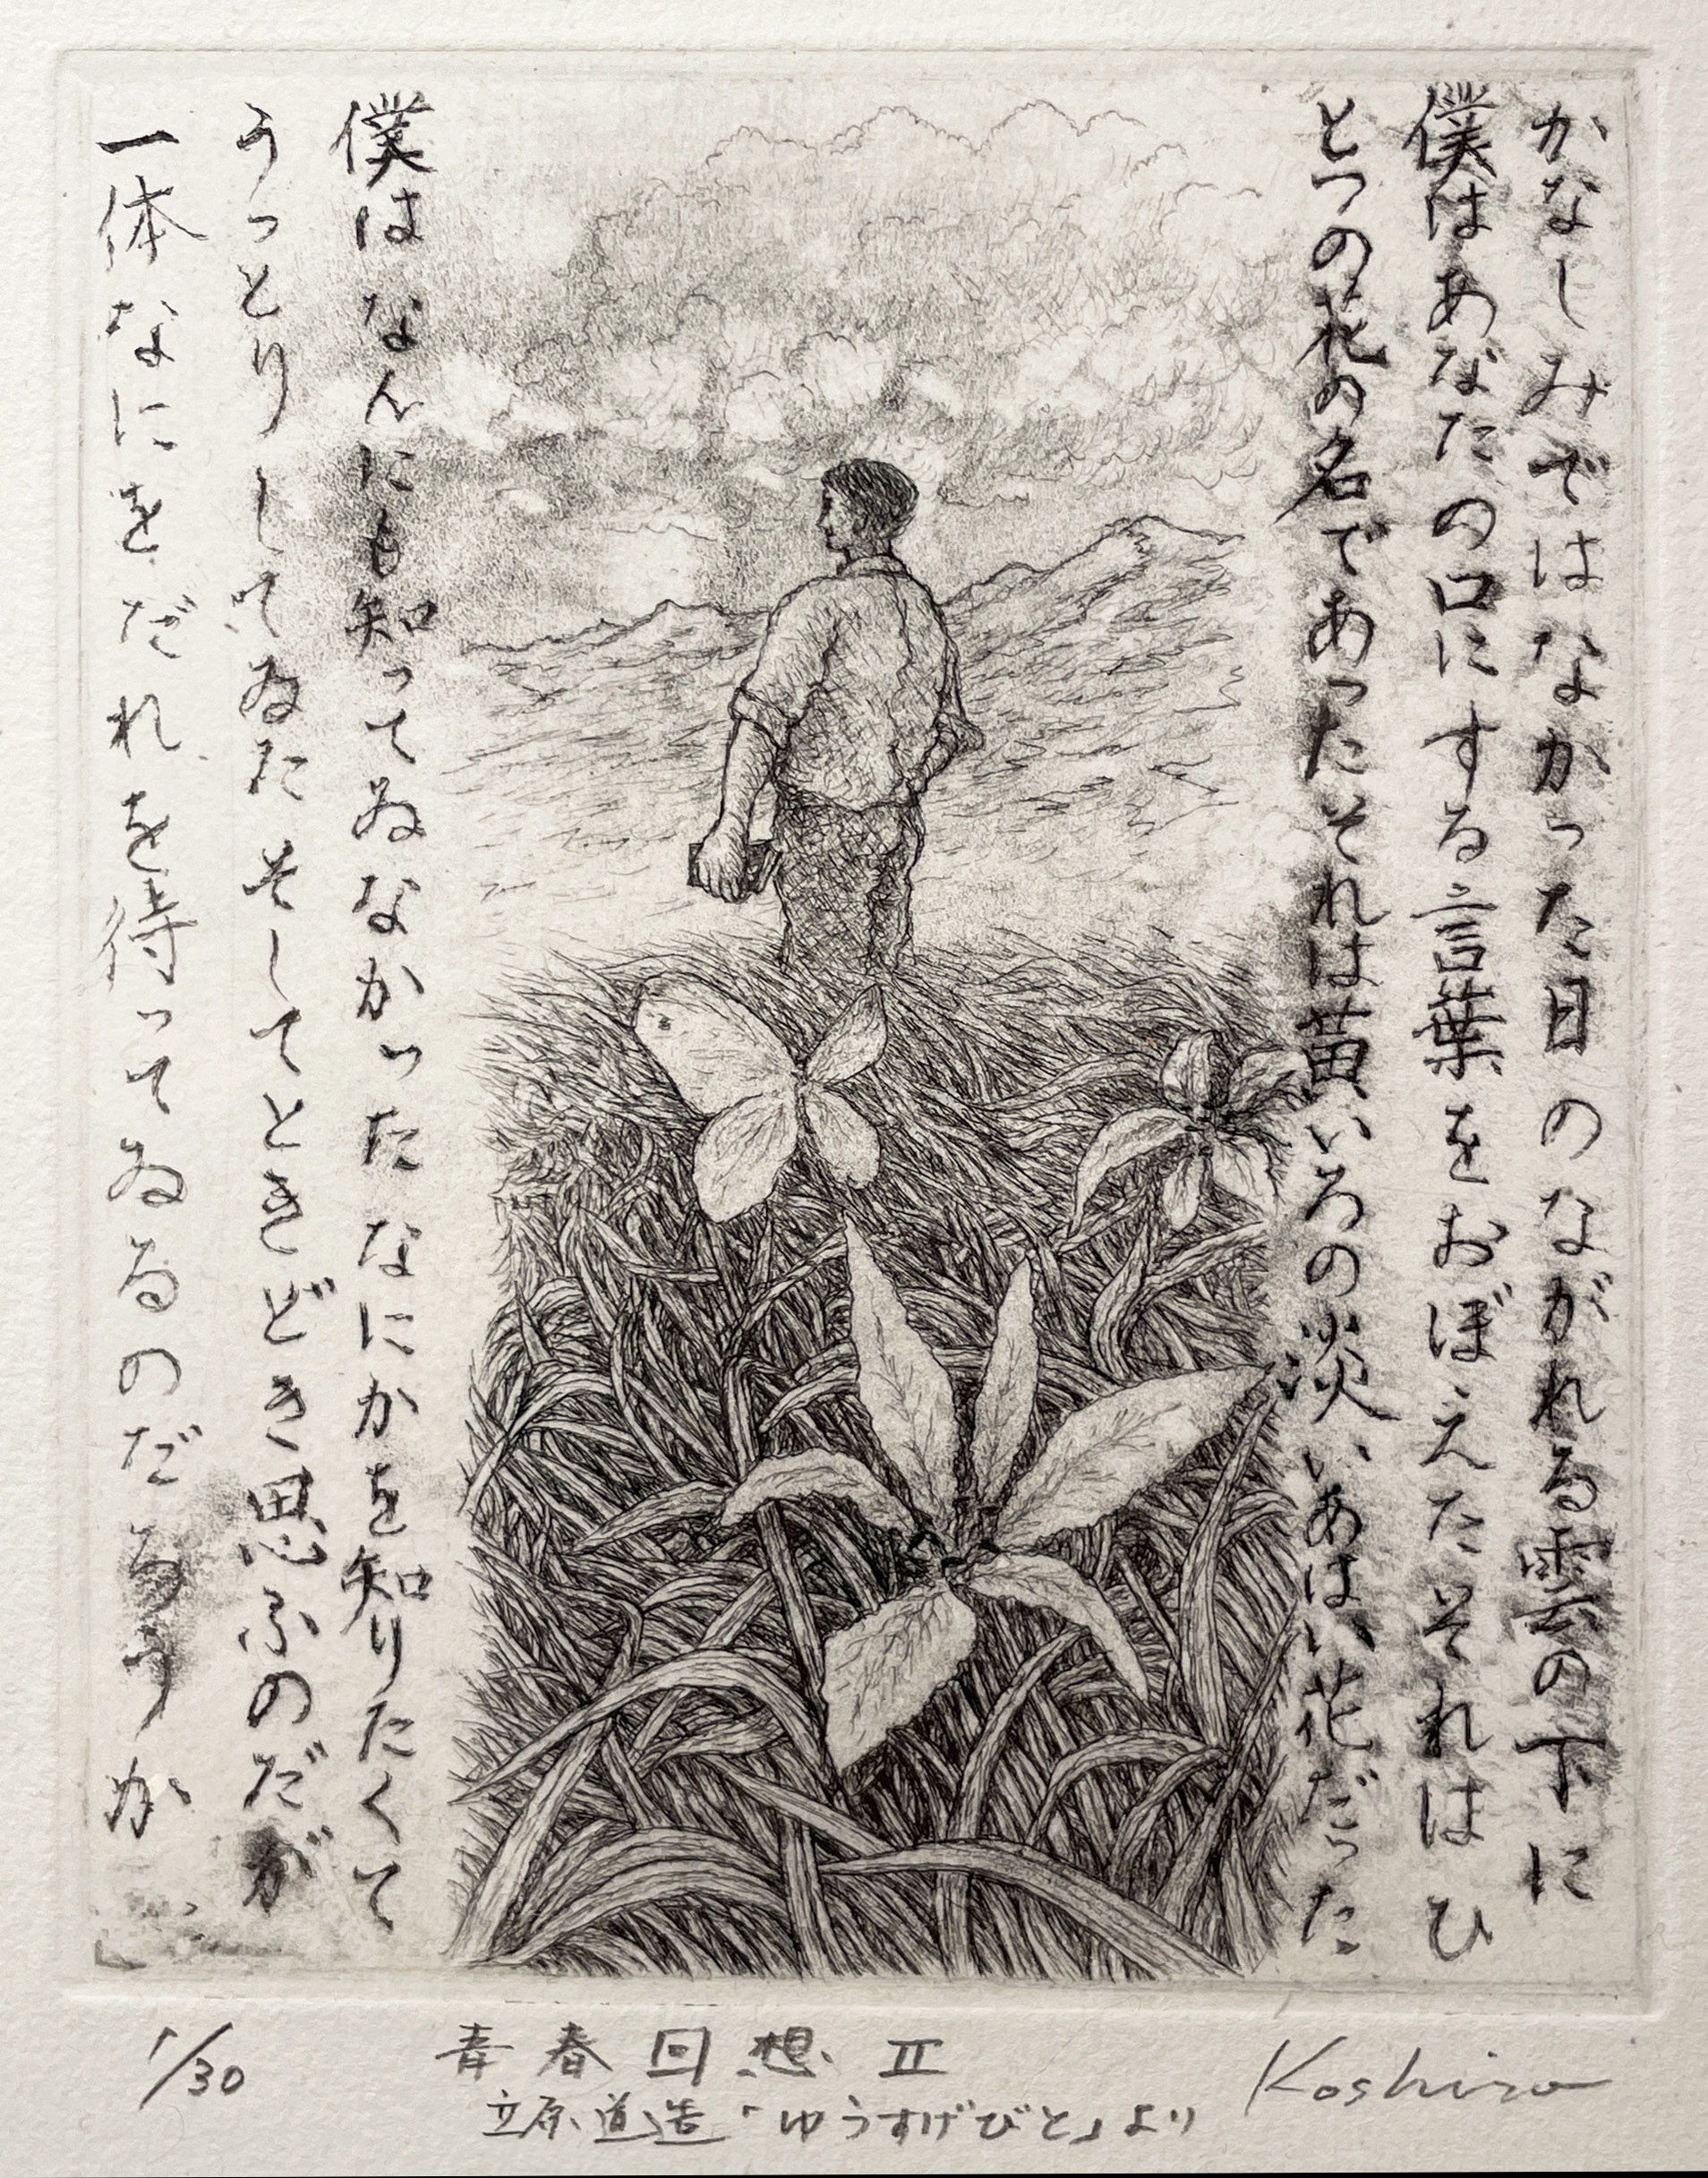 かなしみではなかった日のながれる雲の下に
僕はあなたの口にする言葉をおぼえたそれはひ
とつの花の名であったそれは黄いろの淡いあはい花だった
僕はなんにも知ってゐなかったなにかを知りたくて
うっとりしてゐたそしてときどき思ふのだが
一体なにをだれを待ってゐるのだらうか
1/30
青春回想 II
Koshiro
立原道造「ゆうすげびと」より